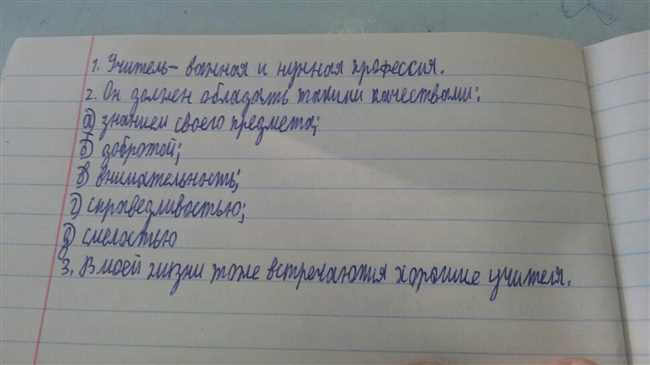 1. Учитель - важная и нужная профессия.
2. Он должен обладать такими качествами:
а) знанием своего предмета;
б) добротой;
в) внимательность;
г) справедливостью;
д) смелостью
3. В моей жизни тоже встречаются хорошие учителя.